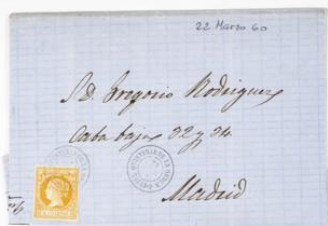 22 Marzo 60
S.D. Gregorio Rodriguez
Caba baja 32 y 34
Madrid